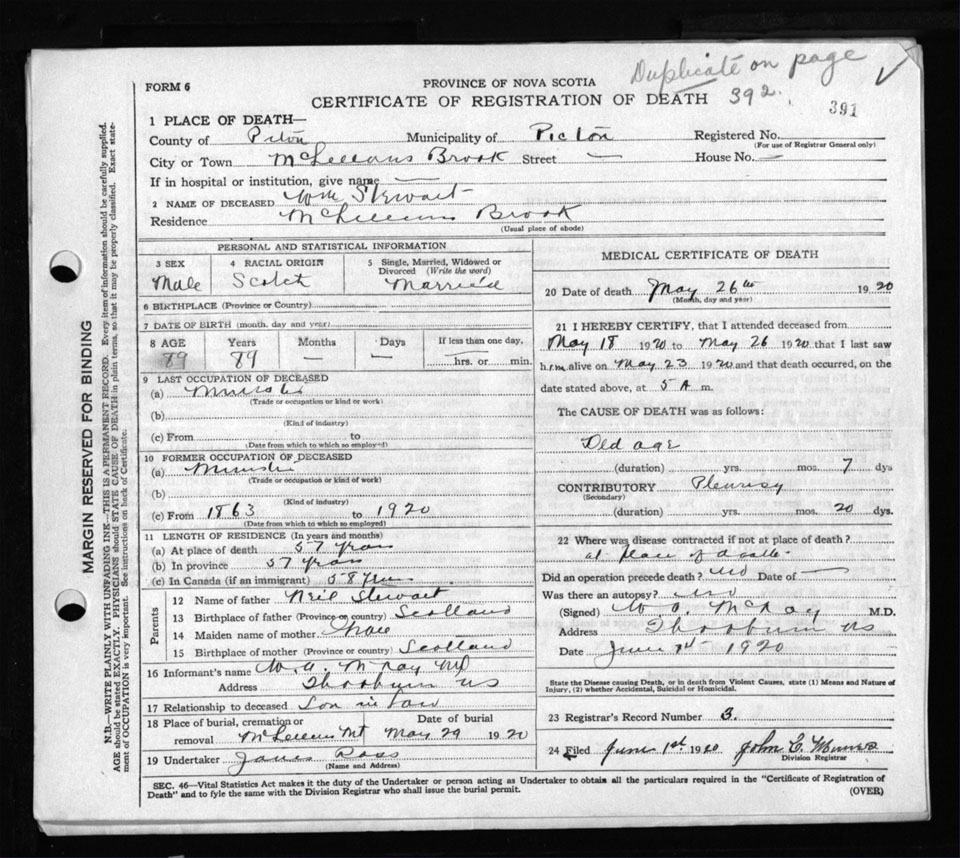 Duplicate on page
392.
391
FORM 6
PROVINCE OF NOVA SCOTIA
CERTIFICATE OF REGISTRATION OF DEATH
1 PLACE OF DEATH—
County of Pictou Municipality of Pictou Registered No.
(For use of Registrar General only)
City or Town McLellans Brook Street — House No. —
If in hospital or institution, give name —
2 NAME OF DECEASED Wm Stewart
Residence McLellans Brook
(Usual place of abode)
PERSONAL AND STATISTICAL INFORMATION
3 SEX
Male
4 RACIAL ORIGIN
Scotch
5 Single, Married, Widowed or
Divorced (Write the word)
Married
6 BIRTHPLACE (Province or Country)
7 DATE OF BIRTH (month, day and year)
8 AGE Years Months Days If less than one day,
89 89 — — hrs. or min.
9 LAST OCCUPATION OF DECEASED
(a) Minister
(Trade or occupation or kind or work)
(b)
(Kind of industry)
(c) From to
(Date from which to which so employed)
10 FORMER OCCUPATION OF DECEASED
(a) Minister
(Trade or occupation or kind of work)
(b)
(Kind of industry)
(c) From 1863 to 1920
(Date from which to which so employed)
11 LENGTH OF RESIDENCE (In years and months)
(a) At place of death 57 years
(b) In province 57 years
(c) In Canada (if an immigrant) 58 years
Parents
12 Name of father Neil Stewart
13 Birthplace of father (Province or country) Scotland
14 Maiden name of mother
15 Birthplace of mother (Province or country) Scotland
16 Informant's name W. A. McKay MD
Address Thorburn NS
17 Relationship to deceased Son in law
18 Place of burial, cremation or Date of burial
removal McLellans Mt May 29 1920
19 Undertaker James Ross
(Name and Address)
MEDICAL CERTIFICATE OF DEATH
20 Date of death May 26th 1920
(Month, day and year)
21 I HEREBY CERTIFY, that I attended deceased from
May 18 1920 to May 26 1920 that I last saw
h.r.m alive on May 23 1920 and that death occurred, on the
date stated above, at 5 A m.
The CAUSE OF DEATH was as follows:
Old age
(duration) yrs. mos. 7 dys
CONTRIBUTORY Pleurisy
(Secondary)
(duration) yrs. mos. 20 dys.
22 Where was disease contracted if not at place of death?
at place of death
Did an operation precede death? no Date of —
Was there an autopsy? no
(Signed) W. A. McKay M.D.
Address Thorburn NS
Date June 1st 1920
State the Disease causing Death, or in death from Violent Causes, state (1) Means and Nature of
Injury, (2) whether Accidental, Suicidal or Homicidal.
23 Registrar's Record Number 3.
24 Filed June 1st 1920 John C. Munro
Division Registrar
SEC. 46—Vital Statistics Act makes it the duty of the Undertaker or person acting as Undertaker to obtain all the particulars required in the "Certificate of Registration of
Death" and to fyle the same with the Division Registrar who shall issue the burial permit.
(OVER)
MARGIN RESERVED FOR BINDING
N.B.—WRITE PLAINLY WITH UNFADING INK—THIS IS A PERMANENT RECORD. Every item of information should be carefully supplied.
AGE should be stated EXACTLY. PHYSICIANS should STATE CAUSE OF DEATH in plain terms, so that it may be properly classified. Exact state-
ment of OCCUPATION is very important. See instructions on back of Certificate.